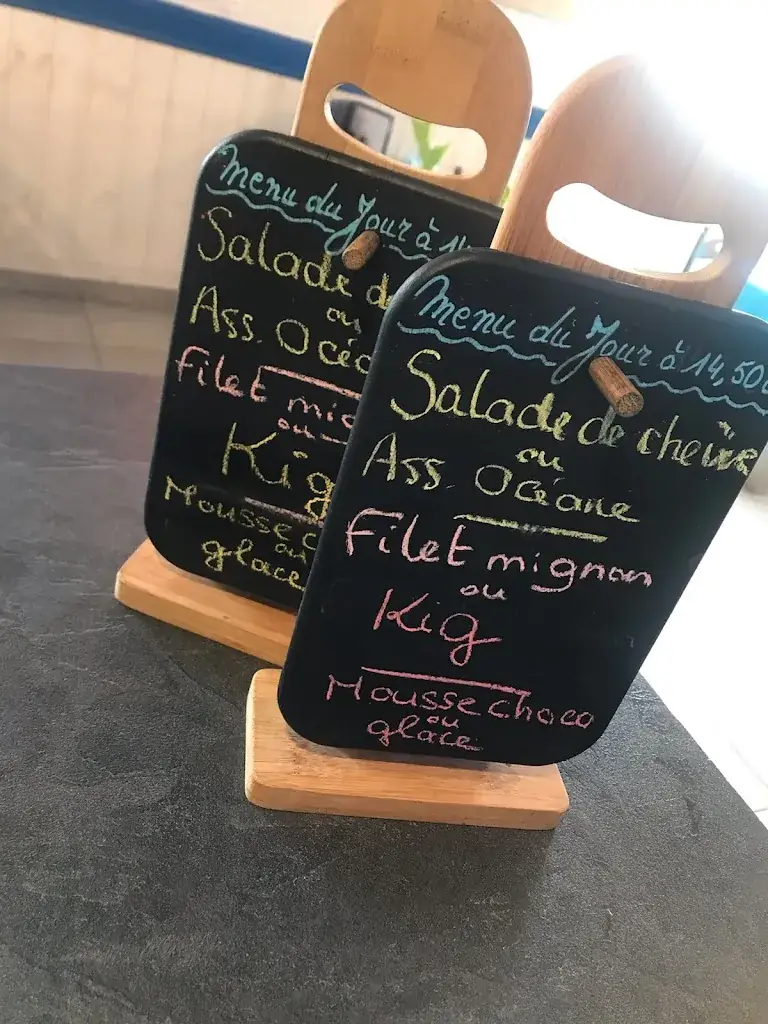 Menu du Jour à
Salade de
ou
Ass. Océa
Filet mig
ou
Kig
Mousse c
ou
glace
Menu du Jour à 14,50€
Salade de chèvre
ou
Ass. Océane
Filet mignon
ou
Kig
Mousse choco
ou
glace